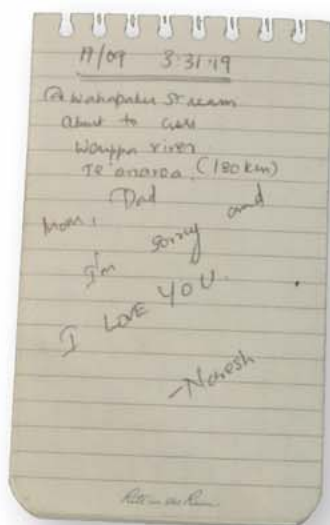 11/09 3:31:19
@ Wahapaku Stream
about to cross
Waruppa river
Te anaroa (180km)
Dad and
Mom,
I'm sorry
I LOVE YOU.
-Naresh
Rite in the Rain